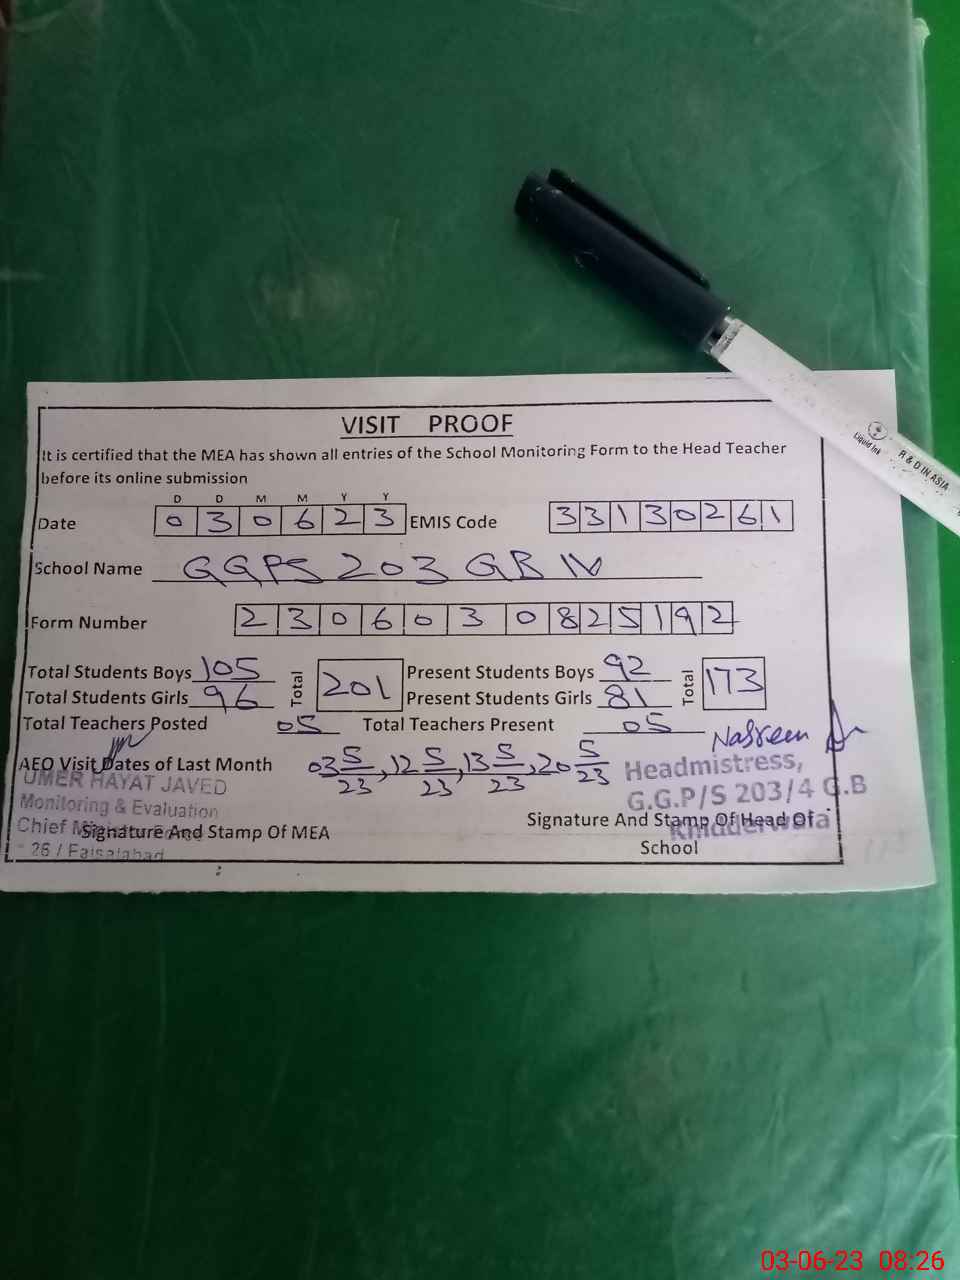 VISIT PROOF
It is certified that the MEA has shown all entries of the School Monitoring Form to the Head Teacher
before its online submission
D D M M Y Y
Date 0 3 0 6 2 3 EMIS Code 3 3 1 3 0 2 6 1
School Name GGPS 203 GB IV
Form Number 2 3 0 6 0 3 0 8 2 5 1 9 2
Total Students Boys 105 Total 201 Present Students Boys 92 Total 173
Total Students Girls 96 Present Students Girls 81
Total Teachers Posted 05 Total Teachers Present 05
Nasreen
AEO Visit Dates of Last Month 03 5/23, 12 5/23, 13 5/23, 20 5/23
UMER HAYAT JAVED
Monitoring & Evaluation
Chief
26 / Faisalabad
Signature And Stamp Of MEA
Headmistress,
G.G.P/S 203/4 G.B
Khidderwala
Signature And Stamp Of Head Of
School
Liquid Ink
R & D IN ASIA
03-06-23 08:26